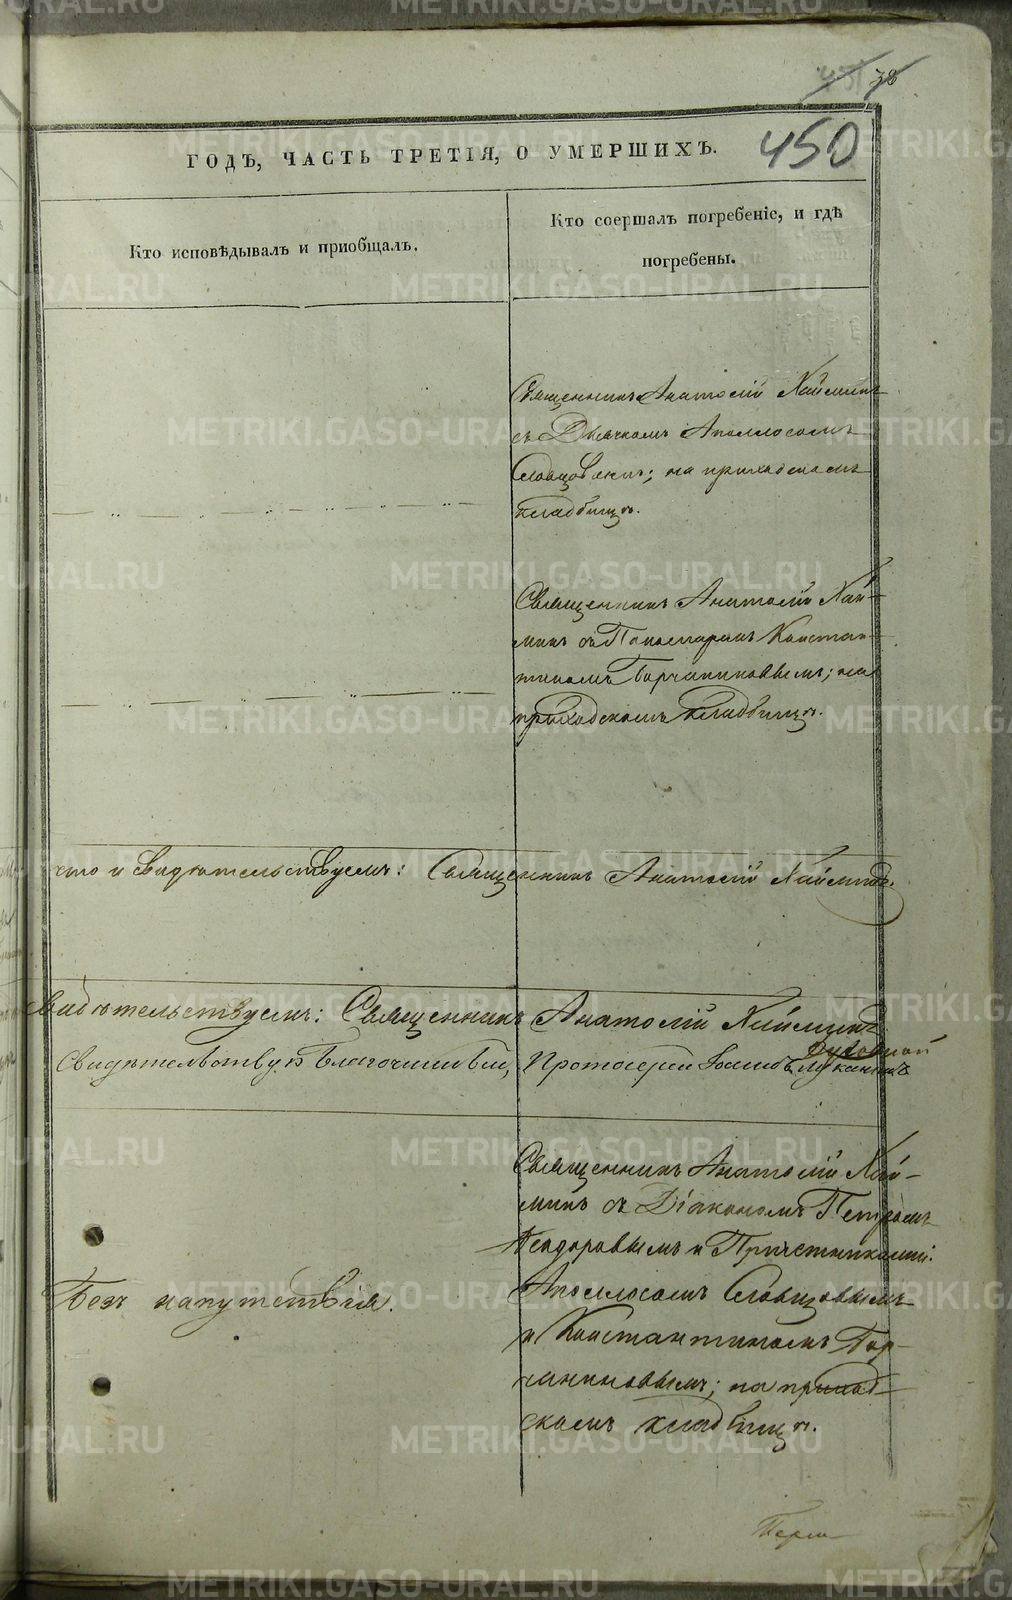 451 78
450
ГОДЪ, ЧАСТЬ ТРЕТІЯ, О УМЕРШИХЪ.
Кто исповѣдывалъ и приобщалъ.
Кто соершалъ погребеніе, и гдѣ
погребены.
Священникъ Анатолій Наймынъ
съ Дьячкомъ Аполлосомъ
Словцовымъ; на приходскомъ
кладбищѣ.
Священникъ Анатолій Най-
мынъ съ Пономаремъ Констан-
тиномъ Горчаниновымъ; на
приходскомъ кладбищѣ.
что и свидѣтельствуемъ: Священникъ Анатолій Наймынъ.
Свидѣтельствуемъ: Священникъ Анатолій Наймынъ
Свидѣтельствую Благочинный, Протоіерей Іоаннъ Луканинъ
Священникъ Анатолій Най-
мынъ съ Діакономъ Петромъ
Ѳеодоровымъ и Причетниками:
Без напутствія.
Аполлосомъ Словцовымъ
и Константиномъ Гор-
чаниновымъ; на приход-
скомъ кладбищѣ.
METRIKI.GASO-URAL.RU